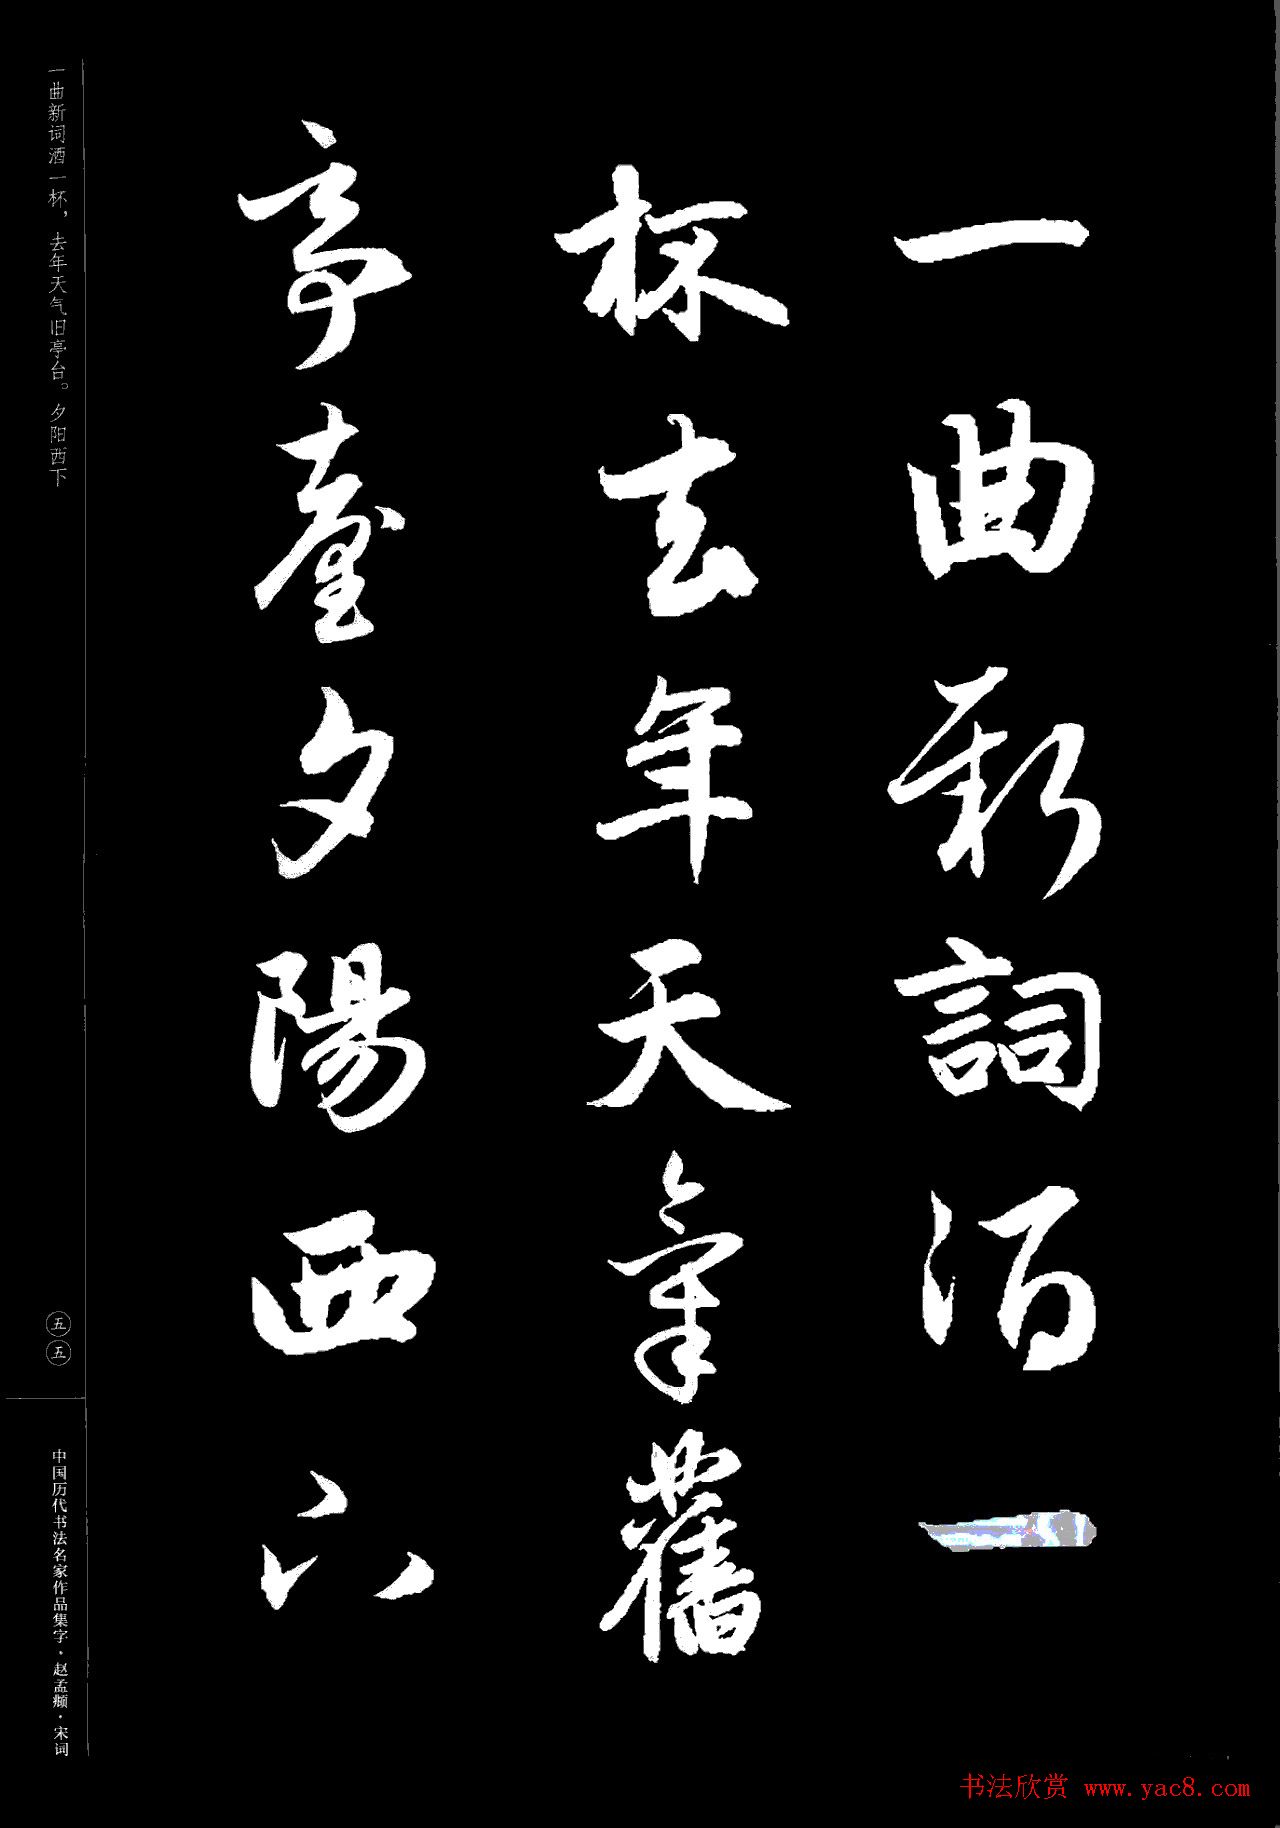 一曲新詞酒一
杯去年天氣舊
亭臺夕陽西下
一曲新词酒一杯，去年天气旧亭台。夕阳西下
五五
中国历代书法名家作品集字·赵孟頫·宋词
书法欣赏 www.yac8.com